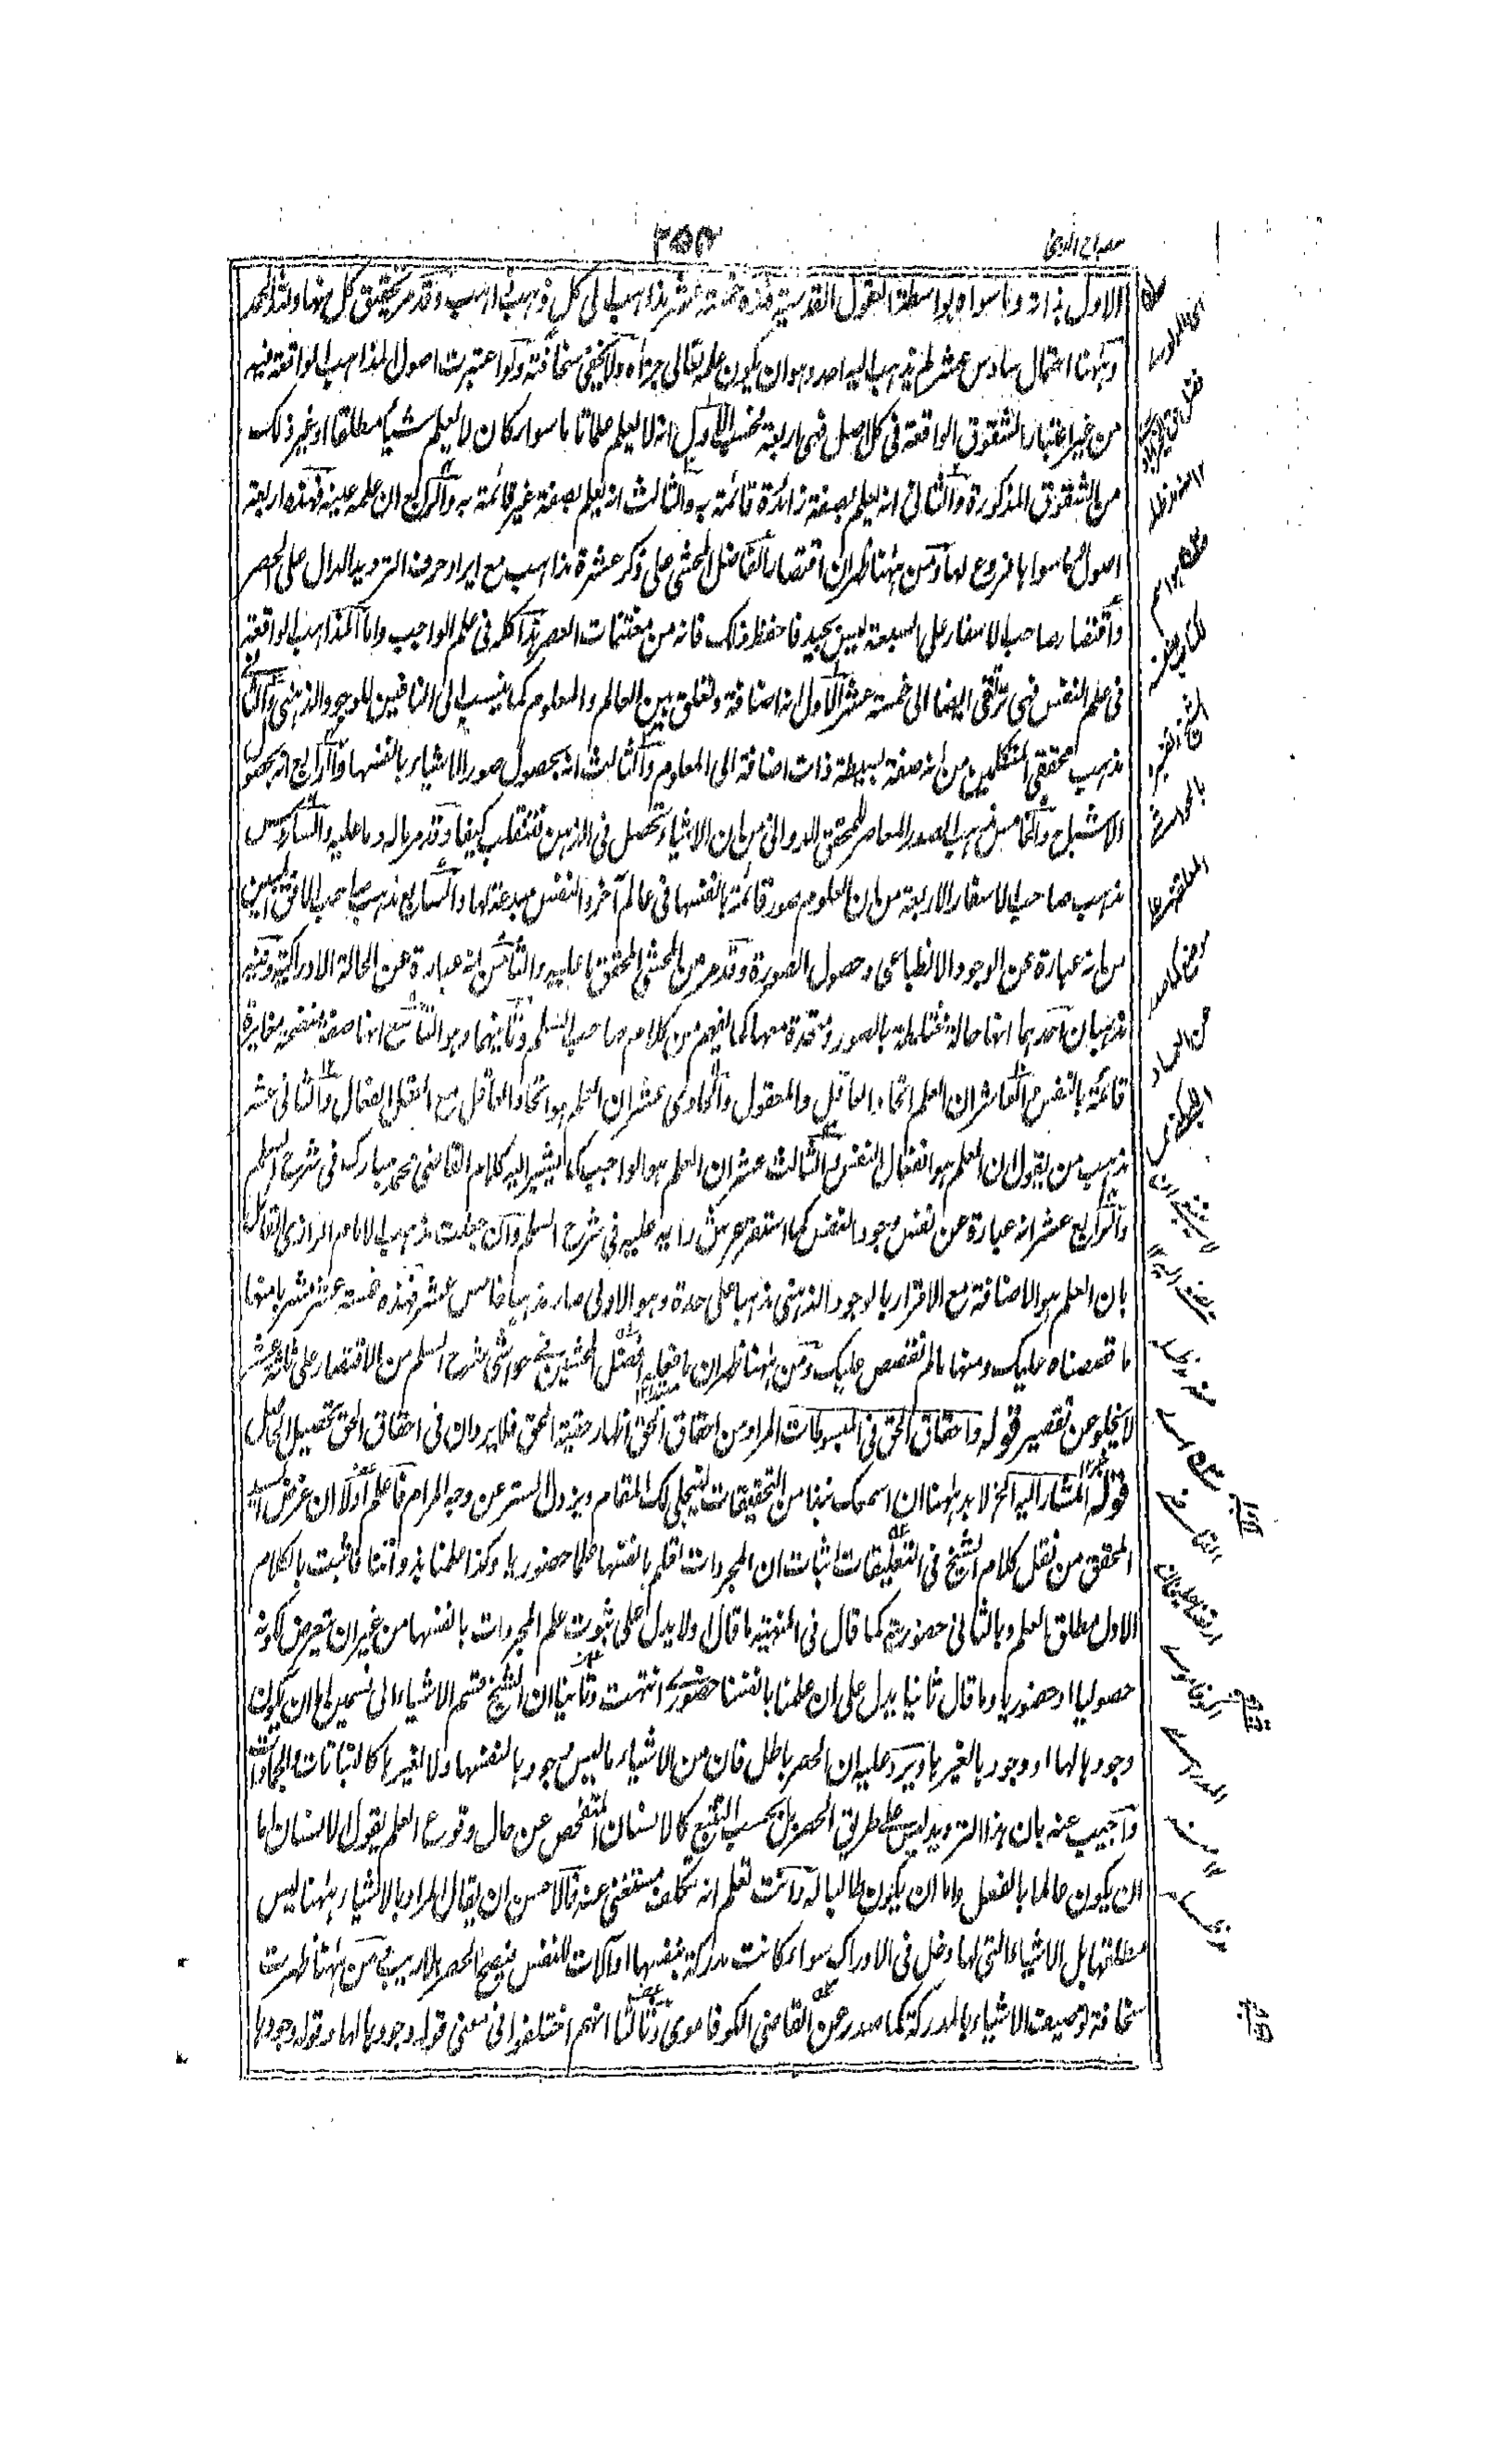 مصباح الدجى
الاول بذاته وما سواه بواسطة العقول القدسية فهذه خمسة عشر مذاهب الى كل ذهب ذاهب وقد مر تحقيق كل منها ولله الحمد
وههنا احتمال سادس عشر لم يذهب اليه احد وهو ان يكون علمه تعالى جزأه ولا يخفى سخافته ولو اعتبرت اصول المذاهب الواقعة فيه
من غير اعتبار الشقوق الواقعة فى كل اصل فهى اربعة الاول انه لا يعلم علما تاما سواء كان لا يعلم شيأ مطلقا او غير ذلك
من الشقوق المذكورة والثانى انه يعلم بصفة زائدة قائمة به والثالث انه يعلم بصفة غير قائمة به والرابع ان علمه عينه فهذه اربعة
اصول ما سواها فروع لها ومن ههنا ظهر ان اقتصار الفاضل المحشى على ذكر عشرة مذاهب مع ايراد حرف الترديد الدال على الحصر
واقتصار صاحب الاسفار على السبعة ليس بجيد فاحفظ ذلك فانه من مغتنمات العصر هذا كله فى علم الواجب واما المذاهب الواقعة
فى علم النفس فهى ترتقى ايضا الى خمسة عشر الاول انه اضافة وتعلق بين العالم والمعلوم كما ينسب الى النافين للوجود الذهنى والثانى
مذهب محققى المتكلمين من انه صفة بسيطة ذات اضافة الى المعلوم والثالث انه بحصول صور الاشياء بانفسها والرابع انه بحصول
الاشباح والخامس مذهب الصدر المعاصر للمحقق الدوانى من ان الاشياء تحصل فى الذهن فتنقلب كيفا وقد مر ماله وما عليه والسادس
مذهب صاحب الاسفار الاربعة من ان المعلوم صور قائمة بانفسها فى عالم آخر والنفس مبدعة لها والسابع مذهب صاحب الافق المبين
من انه عبارة عن الوجود الانطباعى وحصول الصورة وقد مر من المحشى المحقق ما عليه والثامن انه عبارة عن الحالة الادراكية وفيه
مذهبان احدهما انها حالة مختلطة بالصور ومتحدة معها كما يفهم من كلام صاحب السلم وثانيهما وهو التاسع انها صفة منضمة مغايرة
قائمة بالنفس والعاشر ان العلم اتحاد العاقل والمعقول والحادى عشر ان العلم هو اتحاد العاقل مع العقل الفعال والثانى عشر
مذهب من يقول ان العلم هو انفعال النفس والثالث عشر ان العلم هو الواجب كما يشير اليه كلام القاضى محمد مبارك فى شرح السلم
والرابع عشر انه عبارة عن نفس وجود النفس كما استقر عرش رايه عليه فى شرح السلم وان جعلت مذهب الامام الرازى القائل
بان العلم هو الاضافة مع الاقرار بالوجود الذهنى مذهبا على حدة وهو الاولى صار مذهبا خامس عشر فهذه خمسة عشر مشربا منها
ما قصصناه عليك ومنها ما لم نقصص عليك ومن ههنا ظهر ان ما فعله افضل المحشين فى حواشى شرح السلم من الاقتصار على ثلثة عشر
لا يخلو عن تقصير قوله واحقاق الحق فى المبسوطات المراد من احقاق الحق اظهار حقية الحق فلا يرد ان فى احقاق الحق تحصيل الحاصل
قوله المشار اليه الخ لا بد ههنا ان اسمعك نبذا من التحقيقات لينجلى لك المقام ويزول الستر عن وجه المرام فاعلم اولا ان غرض السيد
المحقق من نقل كلام الشيخ فى التعليقات اثبات ان المجردات تعلم بانفسها علما حضوريا وكذا علمنا بذواتنا فاثبت بالكلام
الاول مطلق العلم وبالثانى حضوريته كما قال فى المنهية ما قال اولا يدل على ثبوت علم المجردات بانفسها من غير ان يتعرض لكونه
حصوليا او حضوريا وما قال ثانيا يدل على ان علمنا بانفسنا حضورى انتهت وثانيا ان الشيخ قسم الاشياء الى قسمين اما ان يكون
وجودها لها او وجودها لغيرها ويرد عليه ان الحصر باطل فان من الاشياء ما ليس موجودا لنفسها ولا لغيرها كالنباتات والجمادات
واجيب عنه بان هذا الترديد ليس على طريق الحصر بل بحسب التتبع كالانسان المتفحص عن حال وقوع العلم يقول الانسان اما
ان يكون عالما بالفعل واما ان يكون طالبا له وانت تعلم انه تكلف مستغنى عنه فالاحسن ان يقال المراد بالاشياء ههنا ليس
مطلقها بل الاشياء التى لها دخل فى الادراك سواء كانت مدركة بنفسها او آلات للنفس فيصح الحصر بلا ريب ومن ههنا ظهرت
سخافة توصيف الاشياء بالمدركة كما صدر عن القاضى الكوفاموى وثالثا انهم اختلفوا فى معنى قوله وجودها لها وقوله وجودها